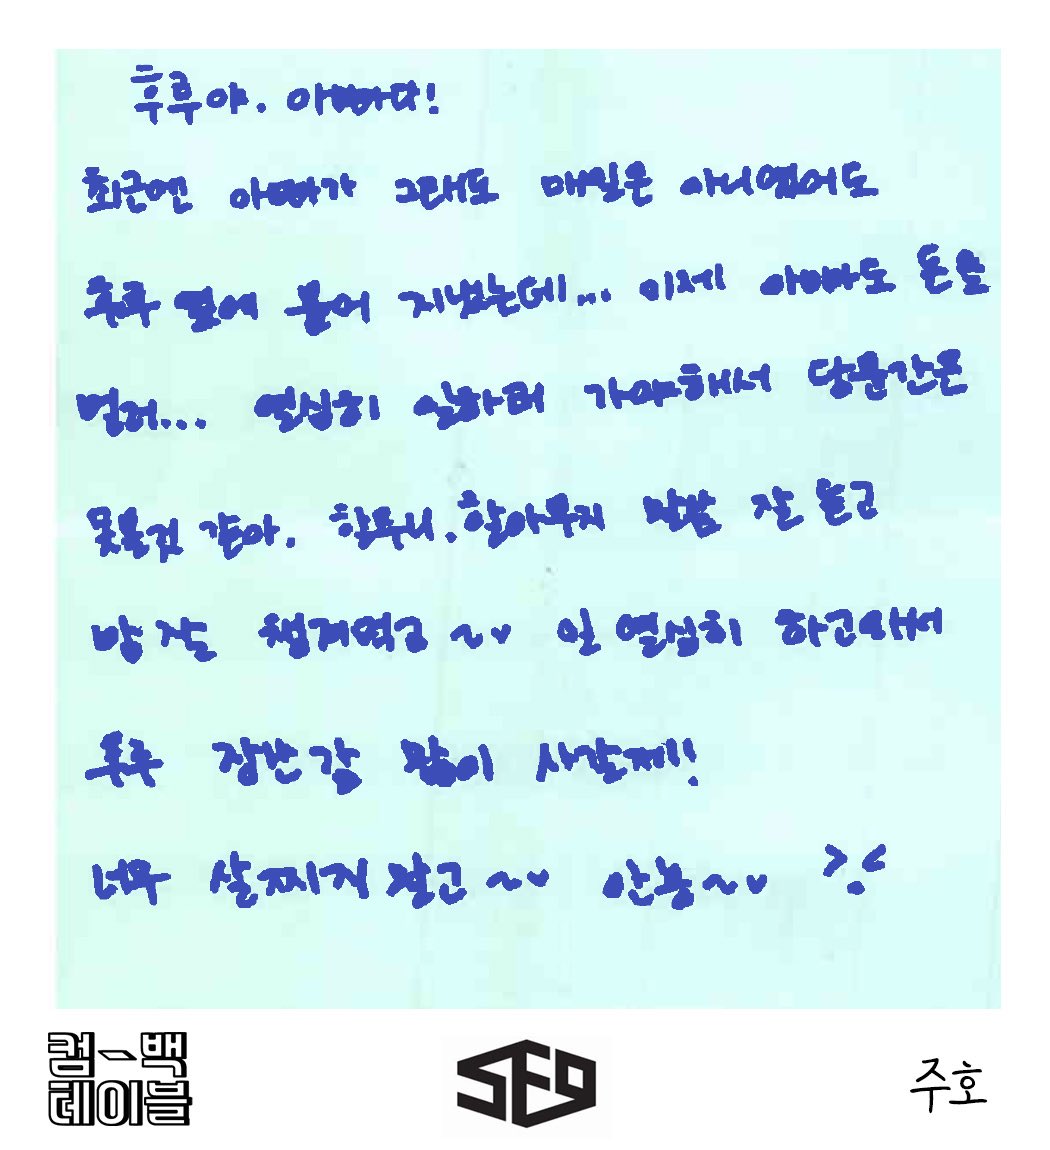 후추야. 아빠다!
최근엔 아빠가 그래도 매일은 아니였어도
후추 옆에 붙어 지냈는데... 이제 아빠도 돈을
벌러... 열심히 일하러 가야해서 당분간은
못볼것 같아. 할무니. 할아부지 말씀 잘 듣고
밥 잘 챙겨먹고 ~♥ 일 열심히 하고와서
후추 장난감 많이 사갈게!
너무 살찌지말고 ~♥ 안뇽 ~♥ >.<
컴백
테이블
SF9
주호